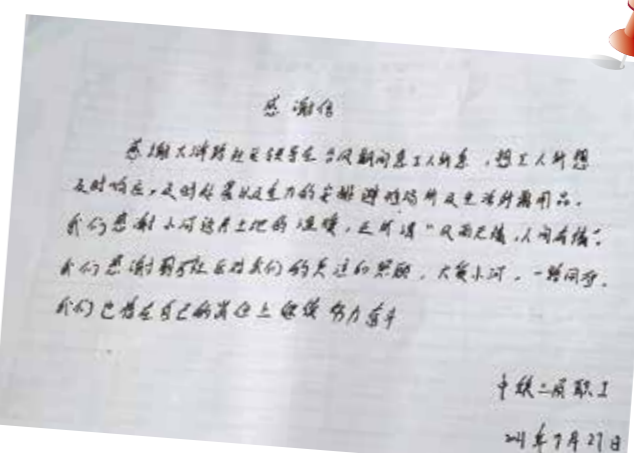 感谢信
感谢大洋路社区领导在台风期间急工人所急，想工人所想
及时响应，及时处置以及全力的安排避难场所及生活所需用品。
我们感谢小河这片土地的温暖，正所谓“风雨无情，人间有情”。
我们感谢社区对我们的关注和照顾，大爱小河，一路同行。
我们也将在自己的岗位上继续努力奋斗
中铁二局职工
2021年7月27日